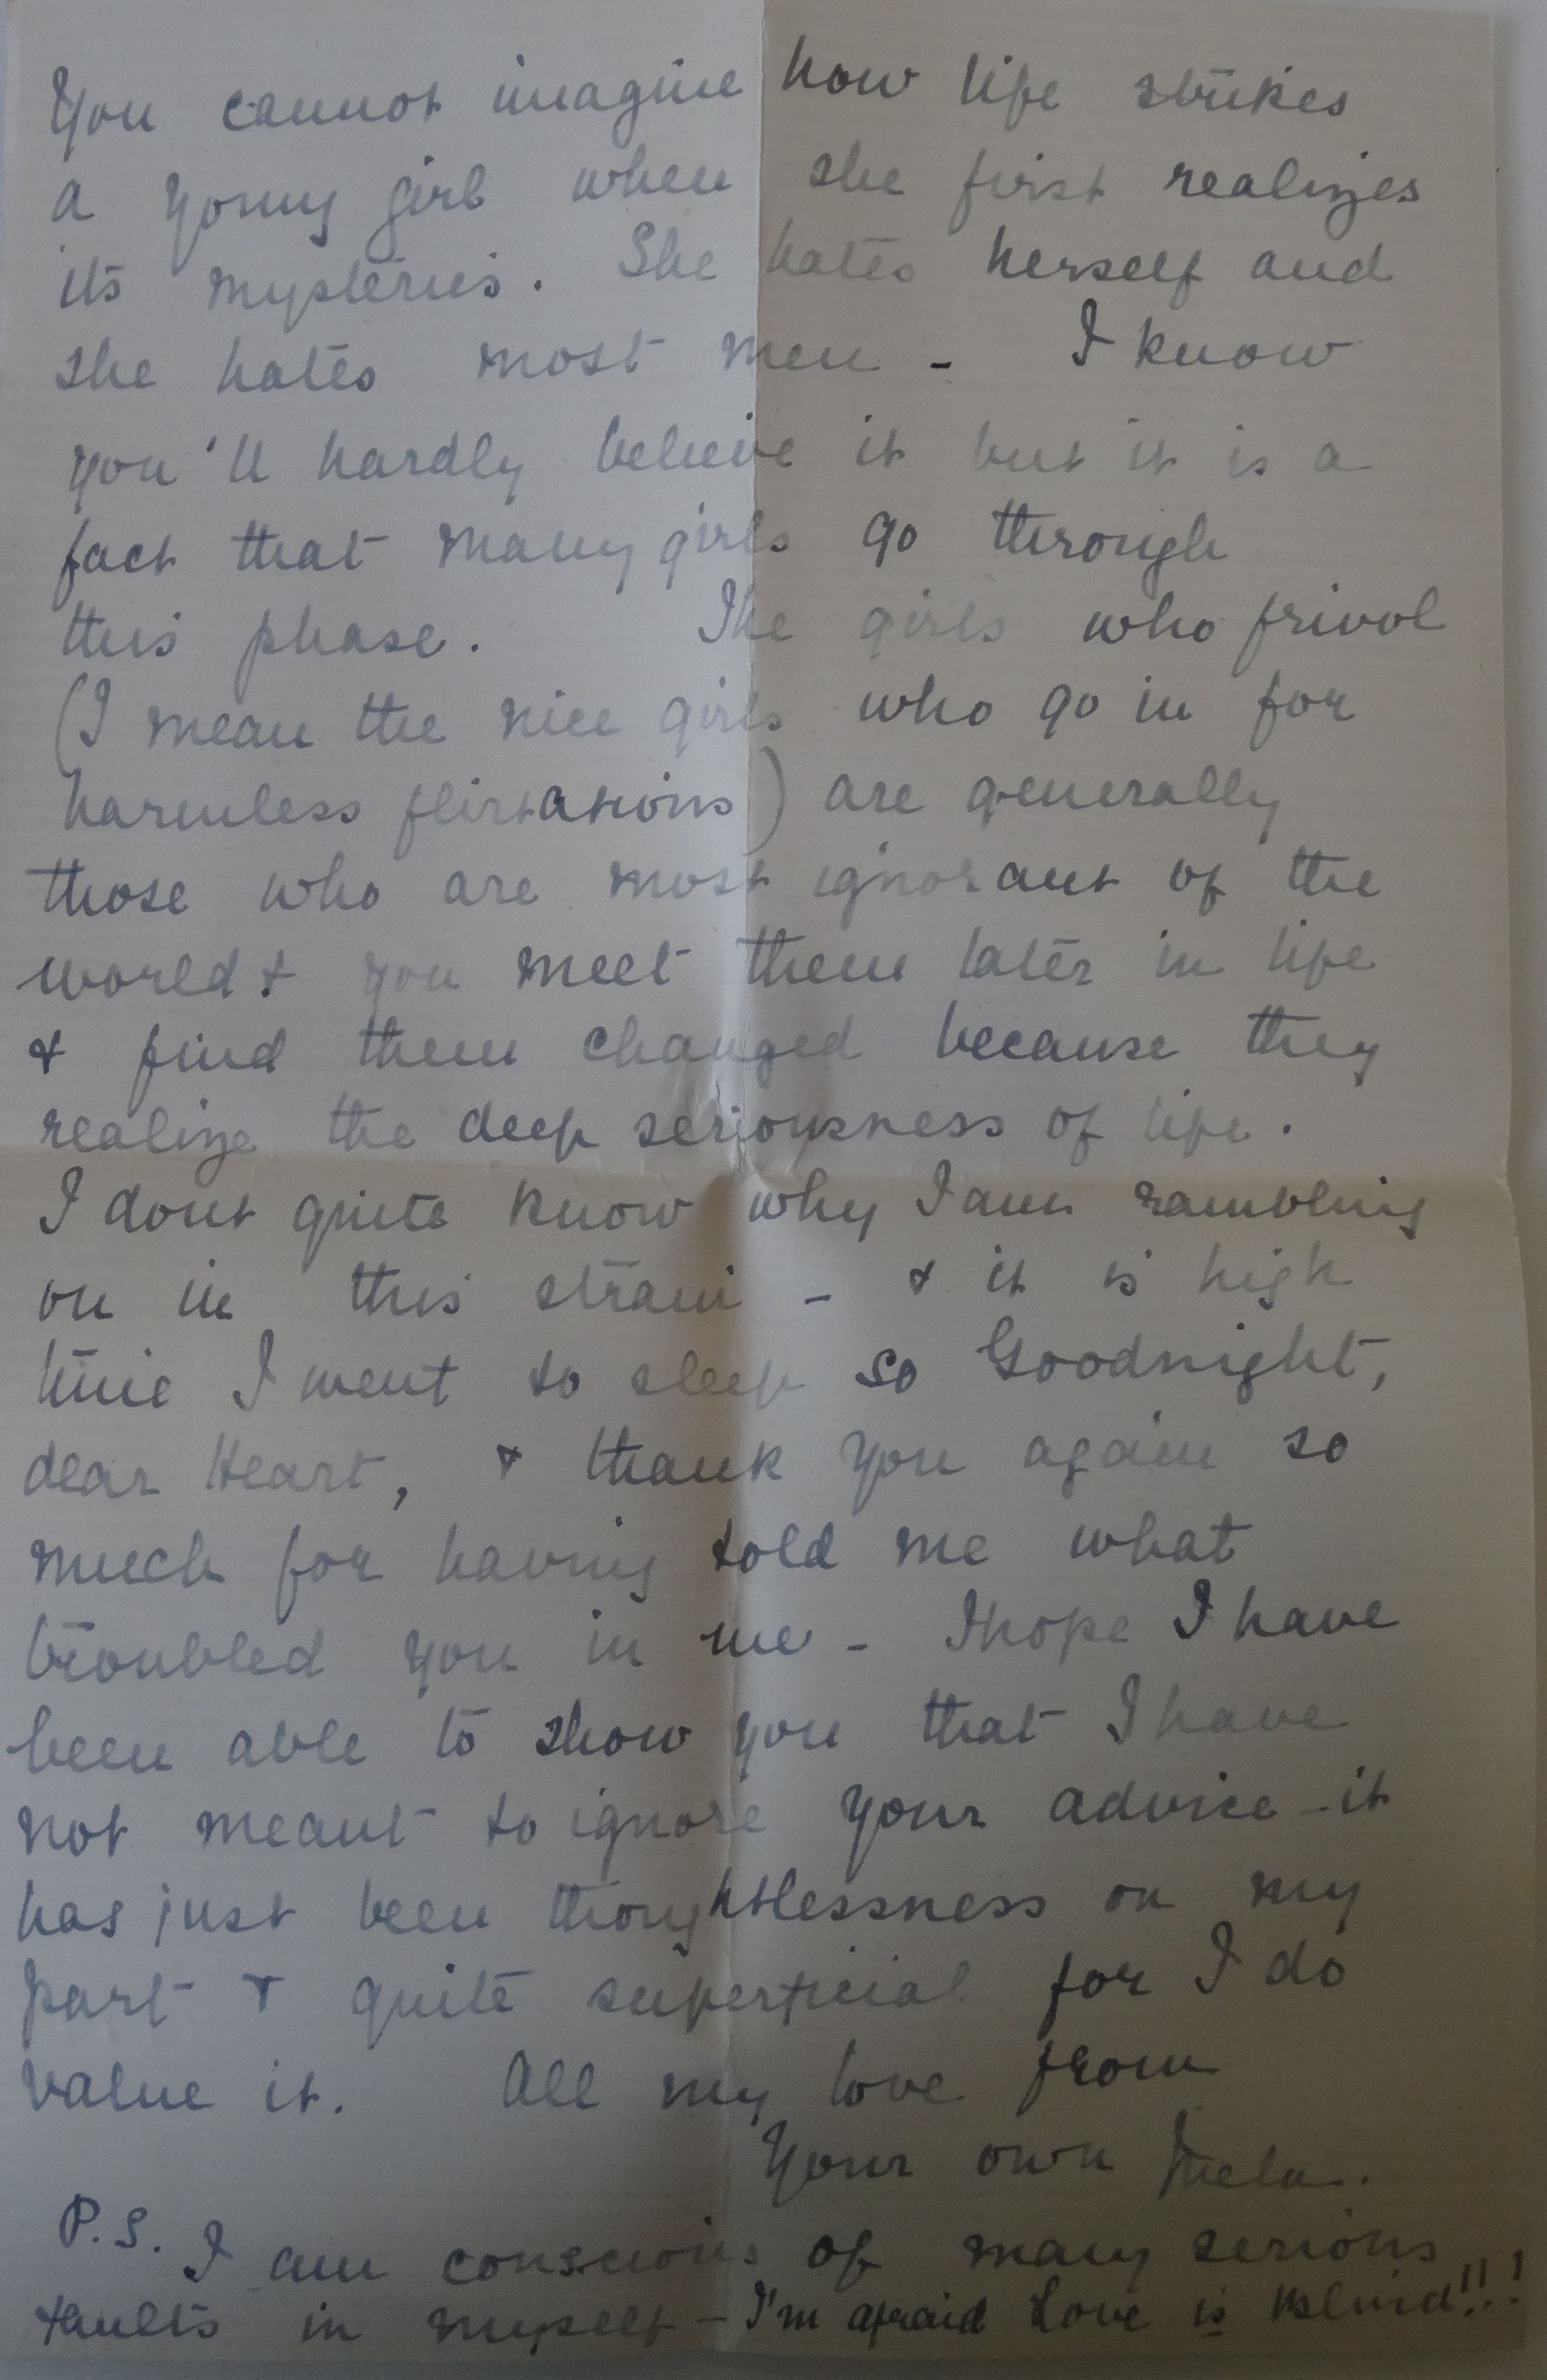 You cannot imagine how life strikes
a young girl when she first realizes
its mysteries. She hates herself and
she hates most men - I know
you'll hardly believe it but it is a
fact that many girls go through
this phase. The girls who frivol
(I mean the nice girls who go in for
harmless flirtations) are generally
those who are most ignorant of the
world & you meet them later in life
& find them changed because they
realize the deep seriousness of life.
I dont quite know why I am rambling
on in this strain - & it is high
time I went to sleep so Goodnight,
dear Heart, & thank you again so
much for having told me what
troubled you in me - I hope I have
been able to show you that I have
not meant to ignore your advice - it
has just been thoughtlessness on my
part & quite superficial for I do
value it. All my love from
Your own
P.S. I am conscious of many serious
faults in myself - I'm afraid Love is blind!!!